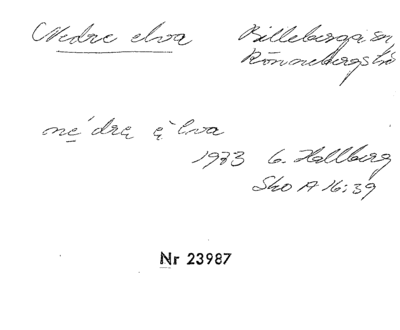 Nedre elva Billeberga sn
Rönnebergs hd
né̱ drę ę̀ lva
1933 G. Hallberg
Sko A 16:39
Nr 23987